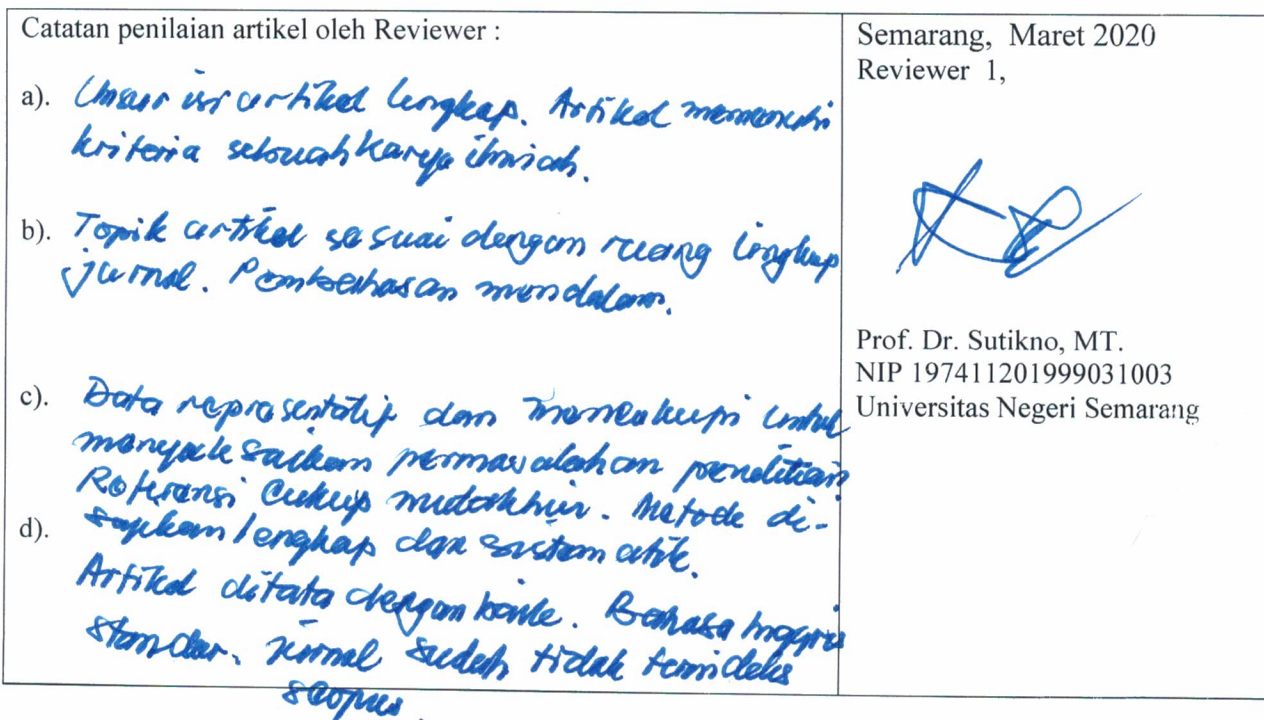 Catatan penilaian artikel oleh Reviewer :
a). Unsur isi artikel lengkap. Artikel memenuhi
kriteria sebuah karya ilmiah.
b). Topik artikel sesuai dengan ruang lingkup
jurnal. Pembahasan mendalam.
c). Data representatip dan mencukupi untuk
menyelesaikan permasalahan penelitian
Referensi cukup mutakhir. Metode di-
d). sajikan lengkap dan sistematik.
Artikel ditata dengan baik. Bahasa Inggris
standar. Jurnal sudah tidak terindeks
scopus.
Semarang, Maret 2020
Reviewer 1,
Prof. Dr. Sutikno, MT.
NIP 197411201999031003
Universitas Negeri Semarang